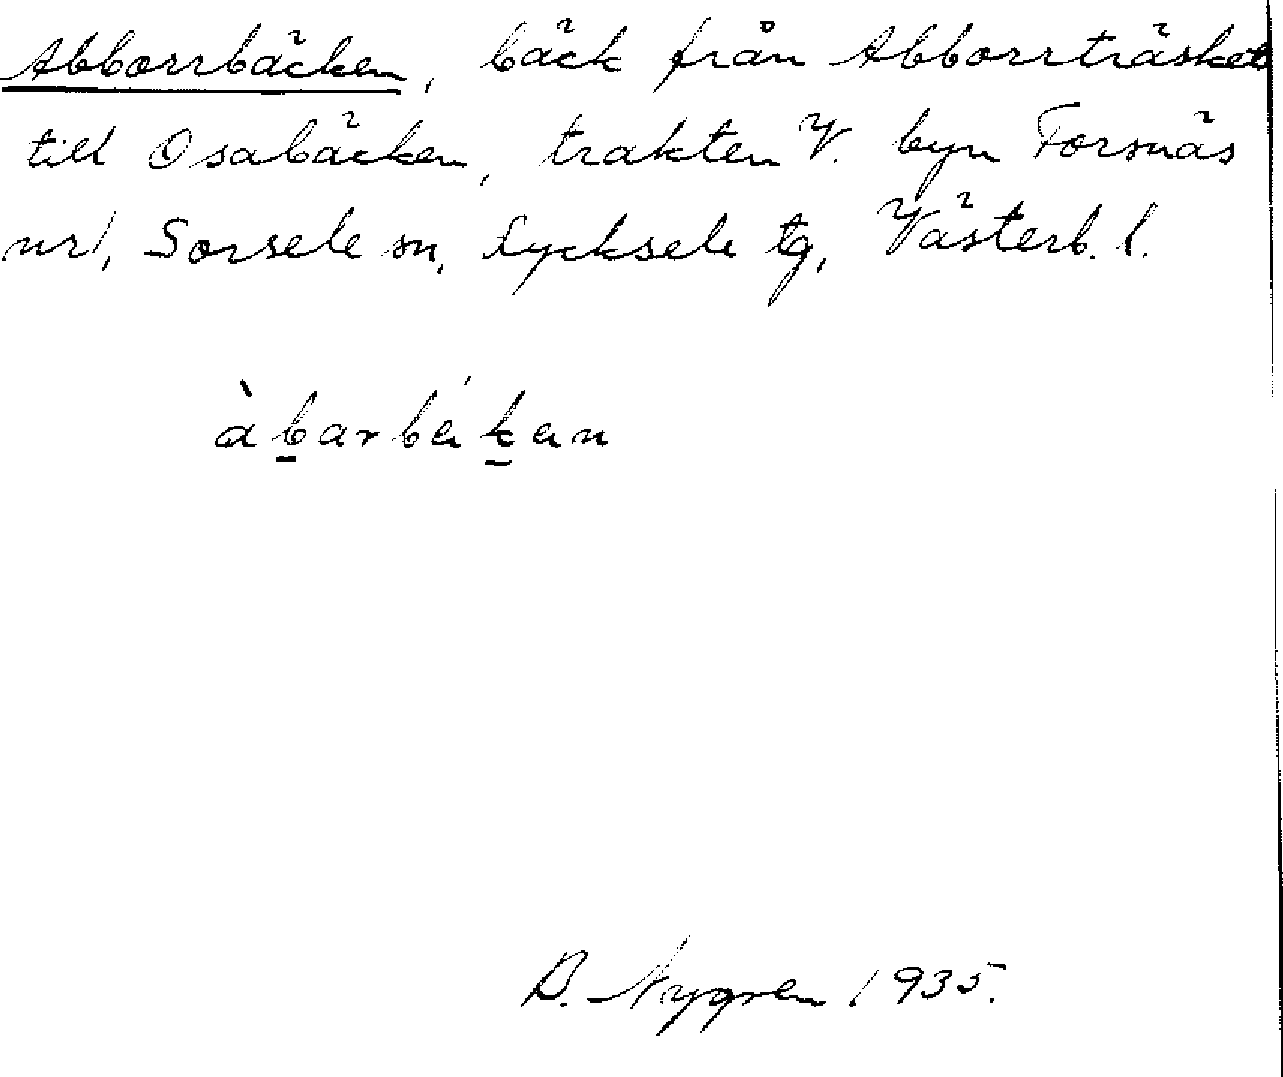 Abborrbäcken, bäck från Abborrträsket
till Osabäcken, trakten V. byn Forsnäs
nr 1, Sorsele sn, Lycksele tg, Västerb. l.
àbarbákan
B. Nygren 1935.